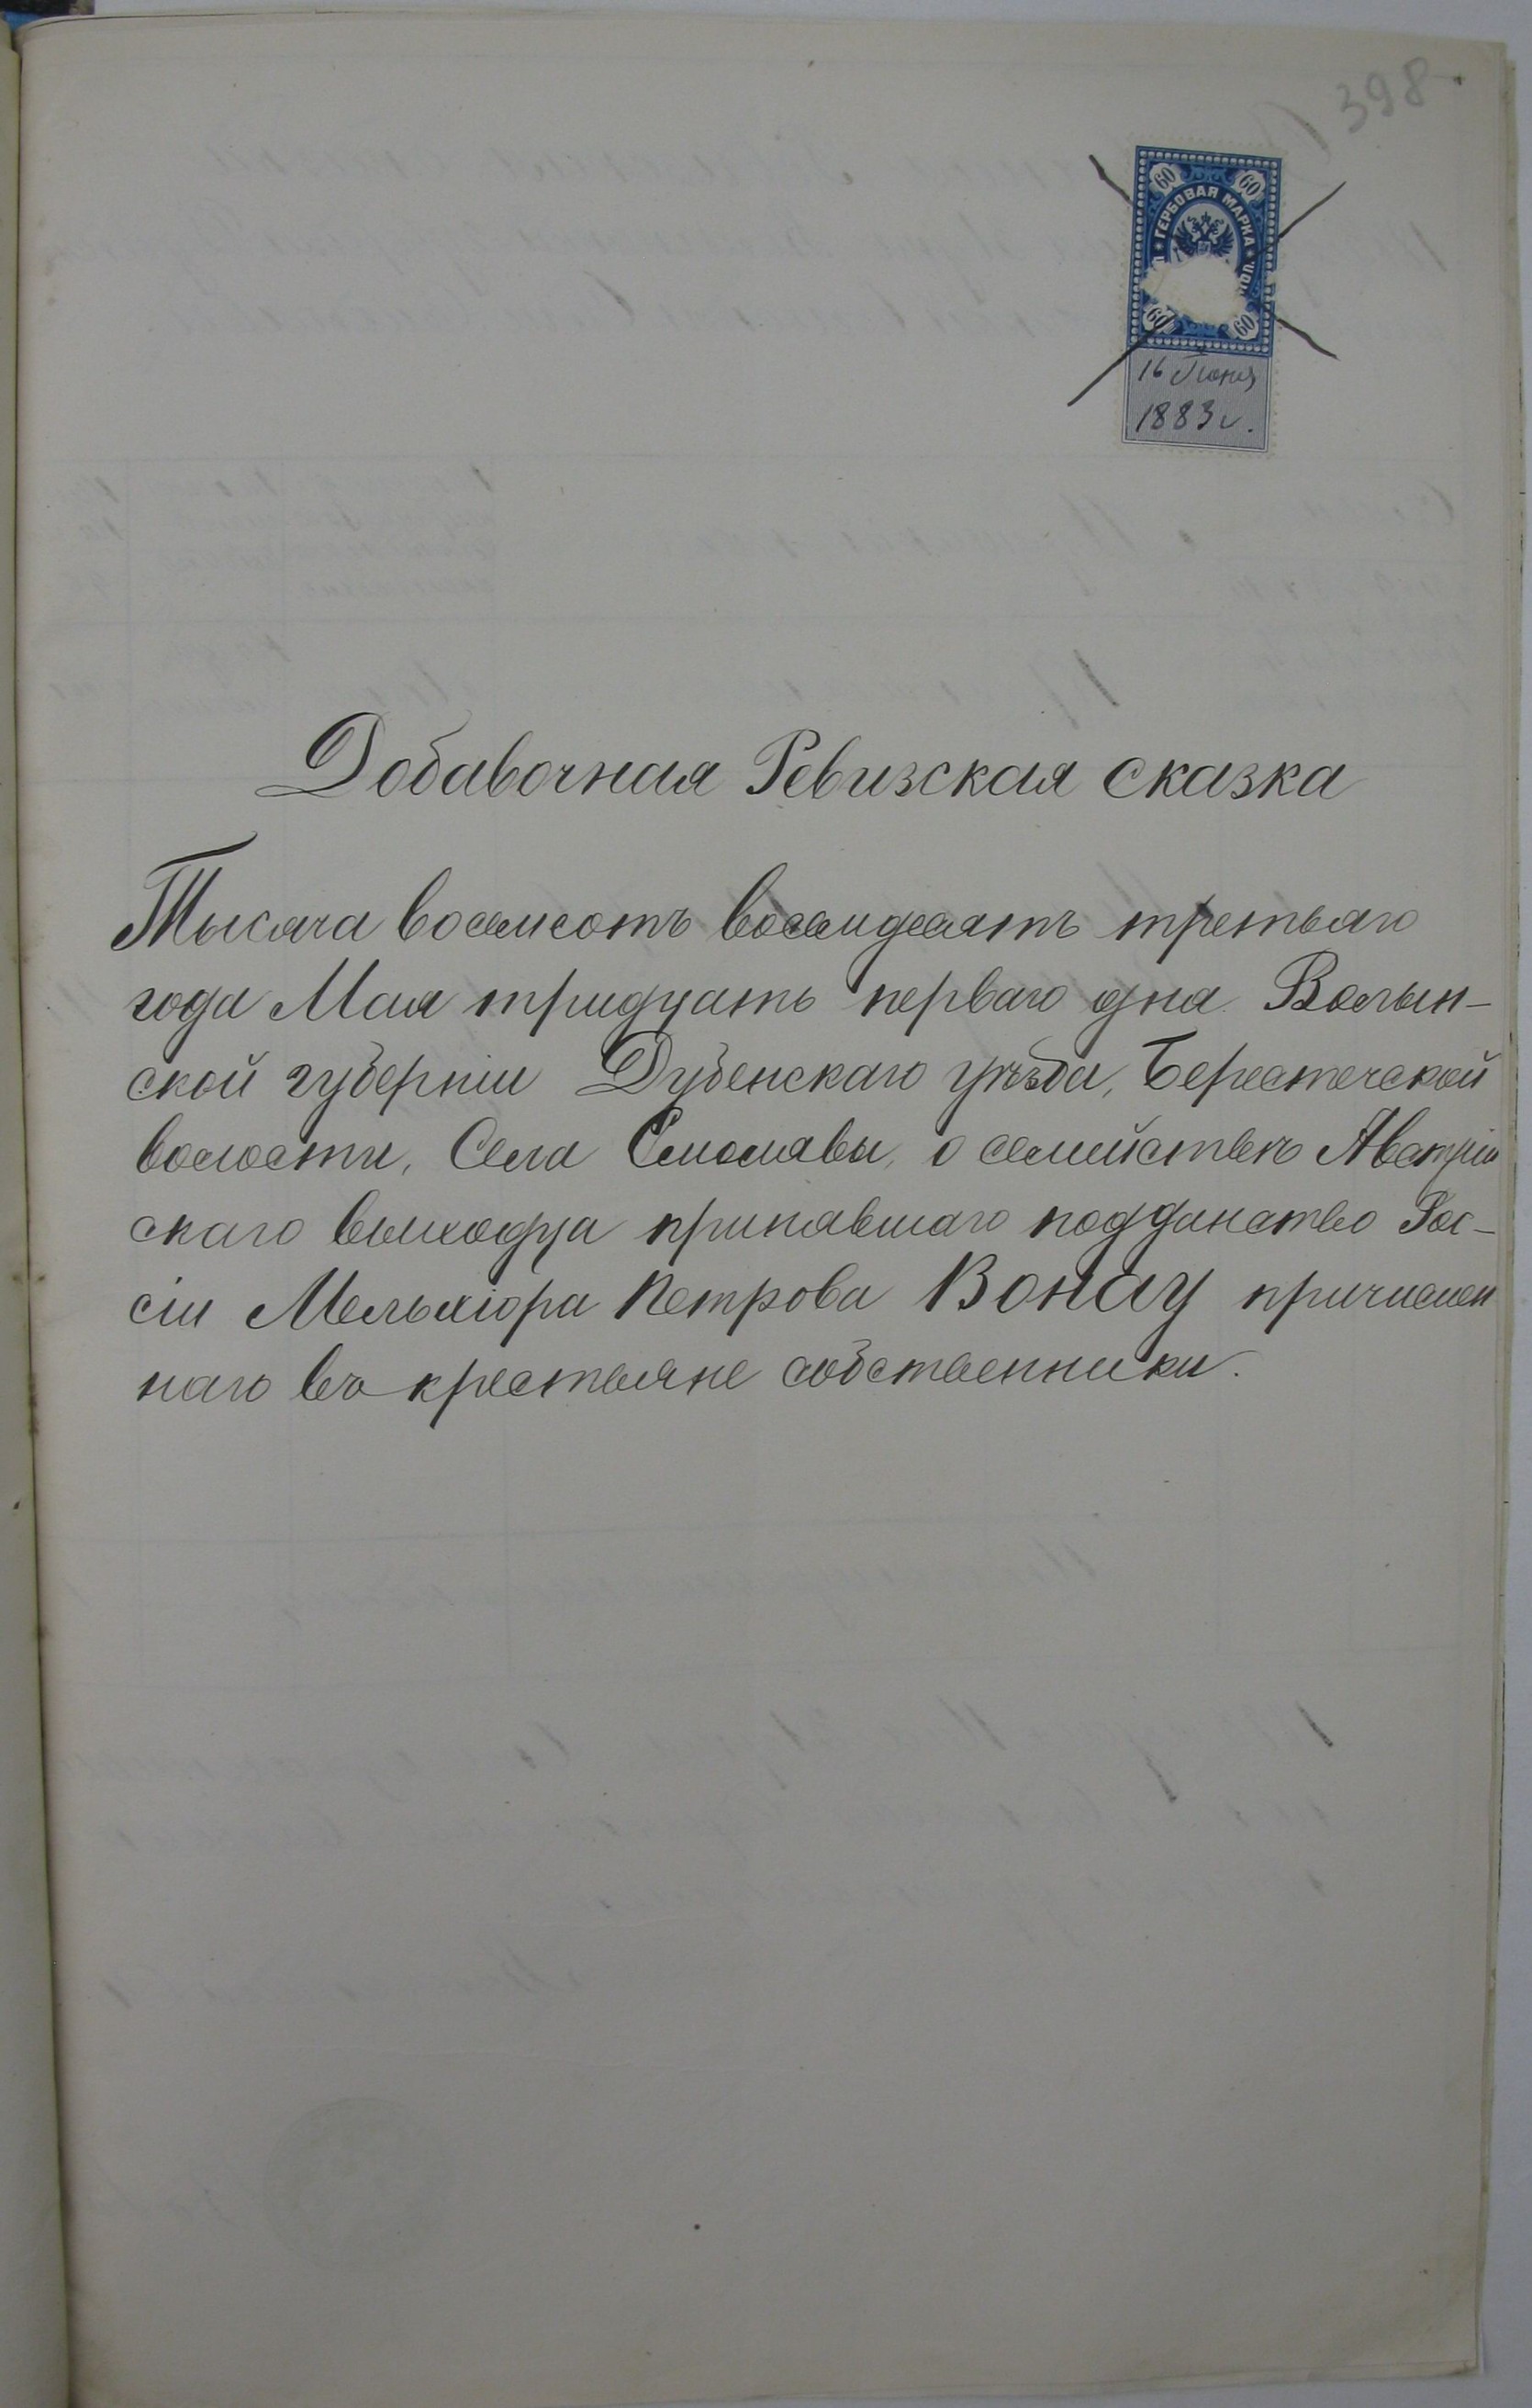 398
60 60
ГЕРБОВАЯ МАРКА
60 60
16 Іюня
1883 г.
Добавочная Ревизская сказка
Тысяча восемсотъ восемдесятъ третьяго
года Мая тридцать перваго дня Волын-
ской губерніи Дубенскаго уѣзда, Берестечской
волости, Села Смолявы, о семействѣ Австрій
скаго выходца принявшаго подданство Рос-
сіи Мельхіора Петрова Вонау причислен
наго въ крестьяне собственники.